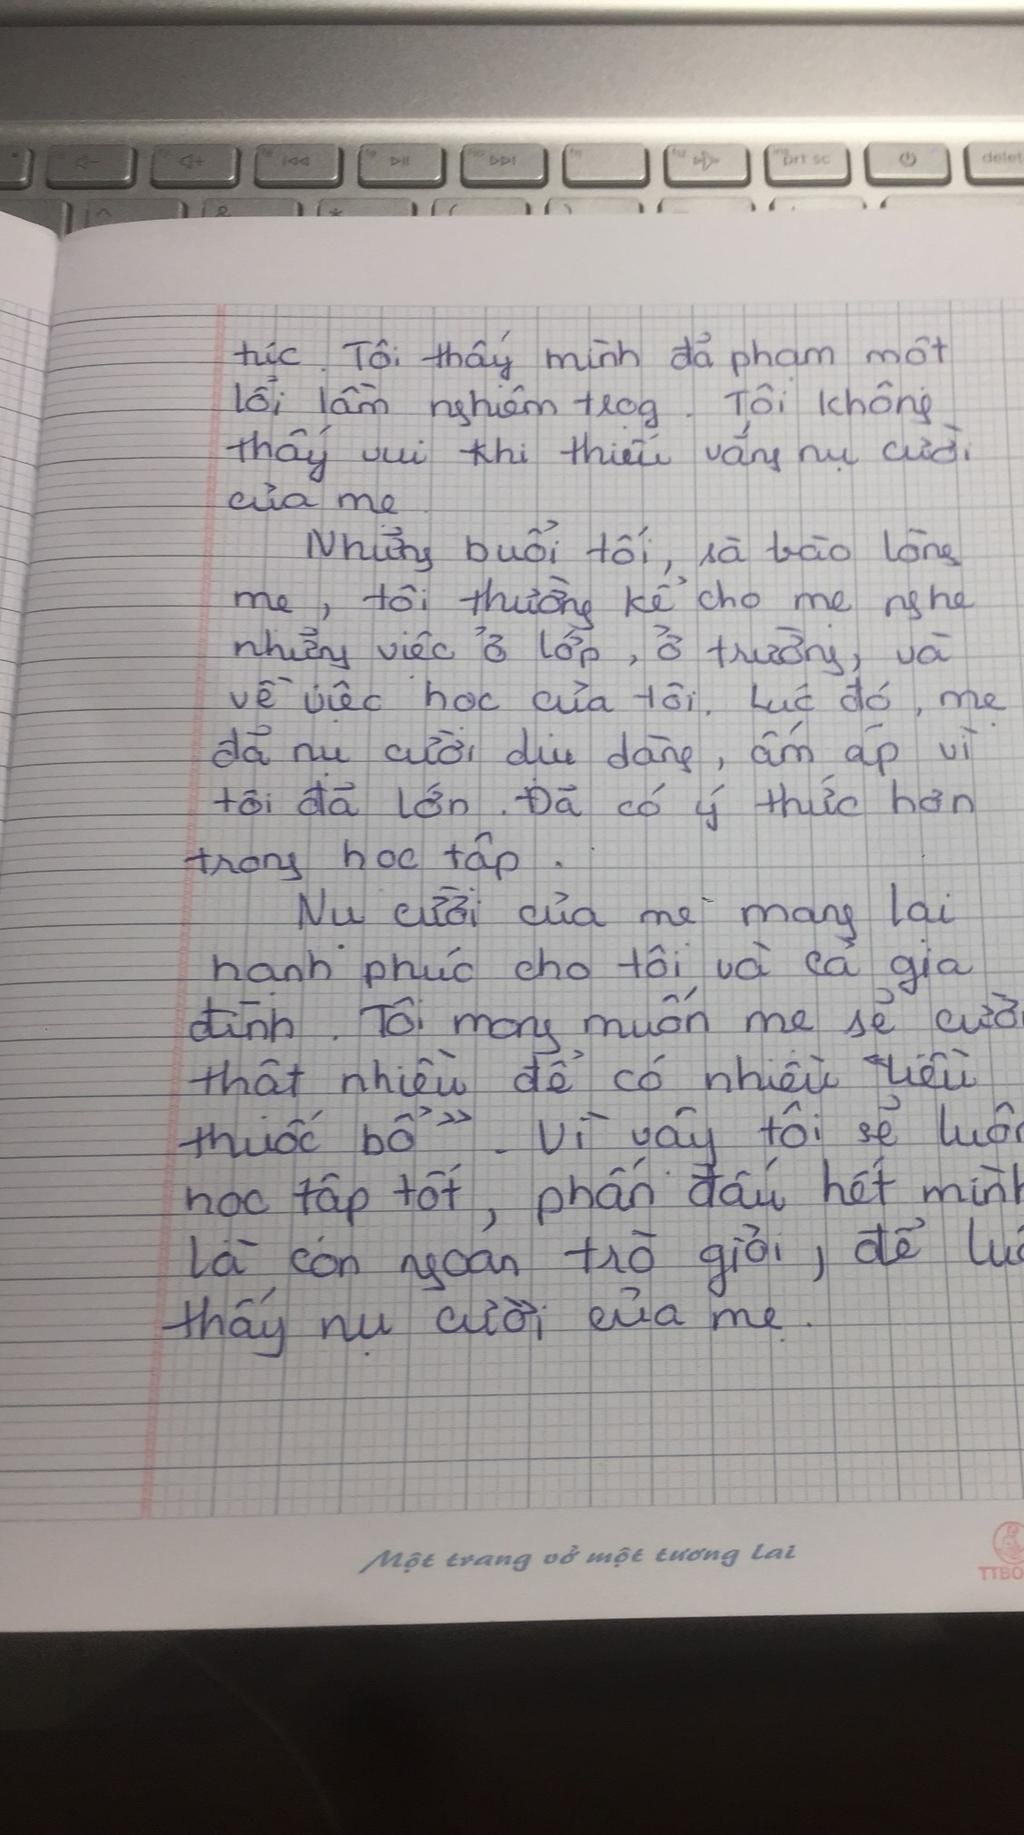 túc. Tôi thấy mình đả pham môt
lổi lầm nghiêm trog. Tôi không
thấy vui khi thiếu vắng nụ cười
của mẹ
Những buổi tối, sà vào lòng
mẹ, tôi thường kể cho mẹ nghe
những việc ở lớp, ở trường, và
về việc học của tôi. Lúc đó, mẹ
đả nụ cười dịu dàng, ấm áp vì
tôi đã lớn. Đã có ý thức hơn
trong học tâp.
Nụ cười của mẹ mang lại
hanh phúc cho tôi và cả gia
đình. Tôi mong muốn mẹ sẻ cười
thât nhiều để có nhiều "liều
thuốc bổ". Vì vây tôi sẻ luôn
học tâp tốt, phấn đấu hết mình
là con ngoan trò giỏi, để
thấy nụ cười của mẹ.
Một trang vở một tương lai